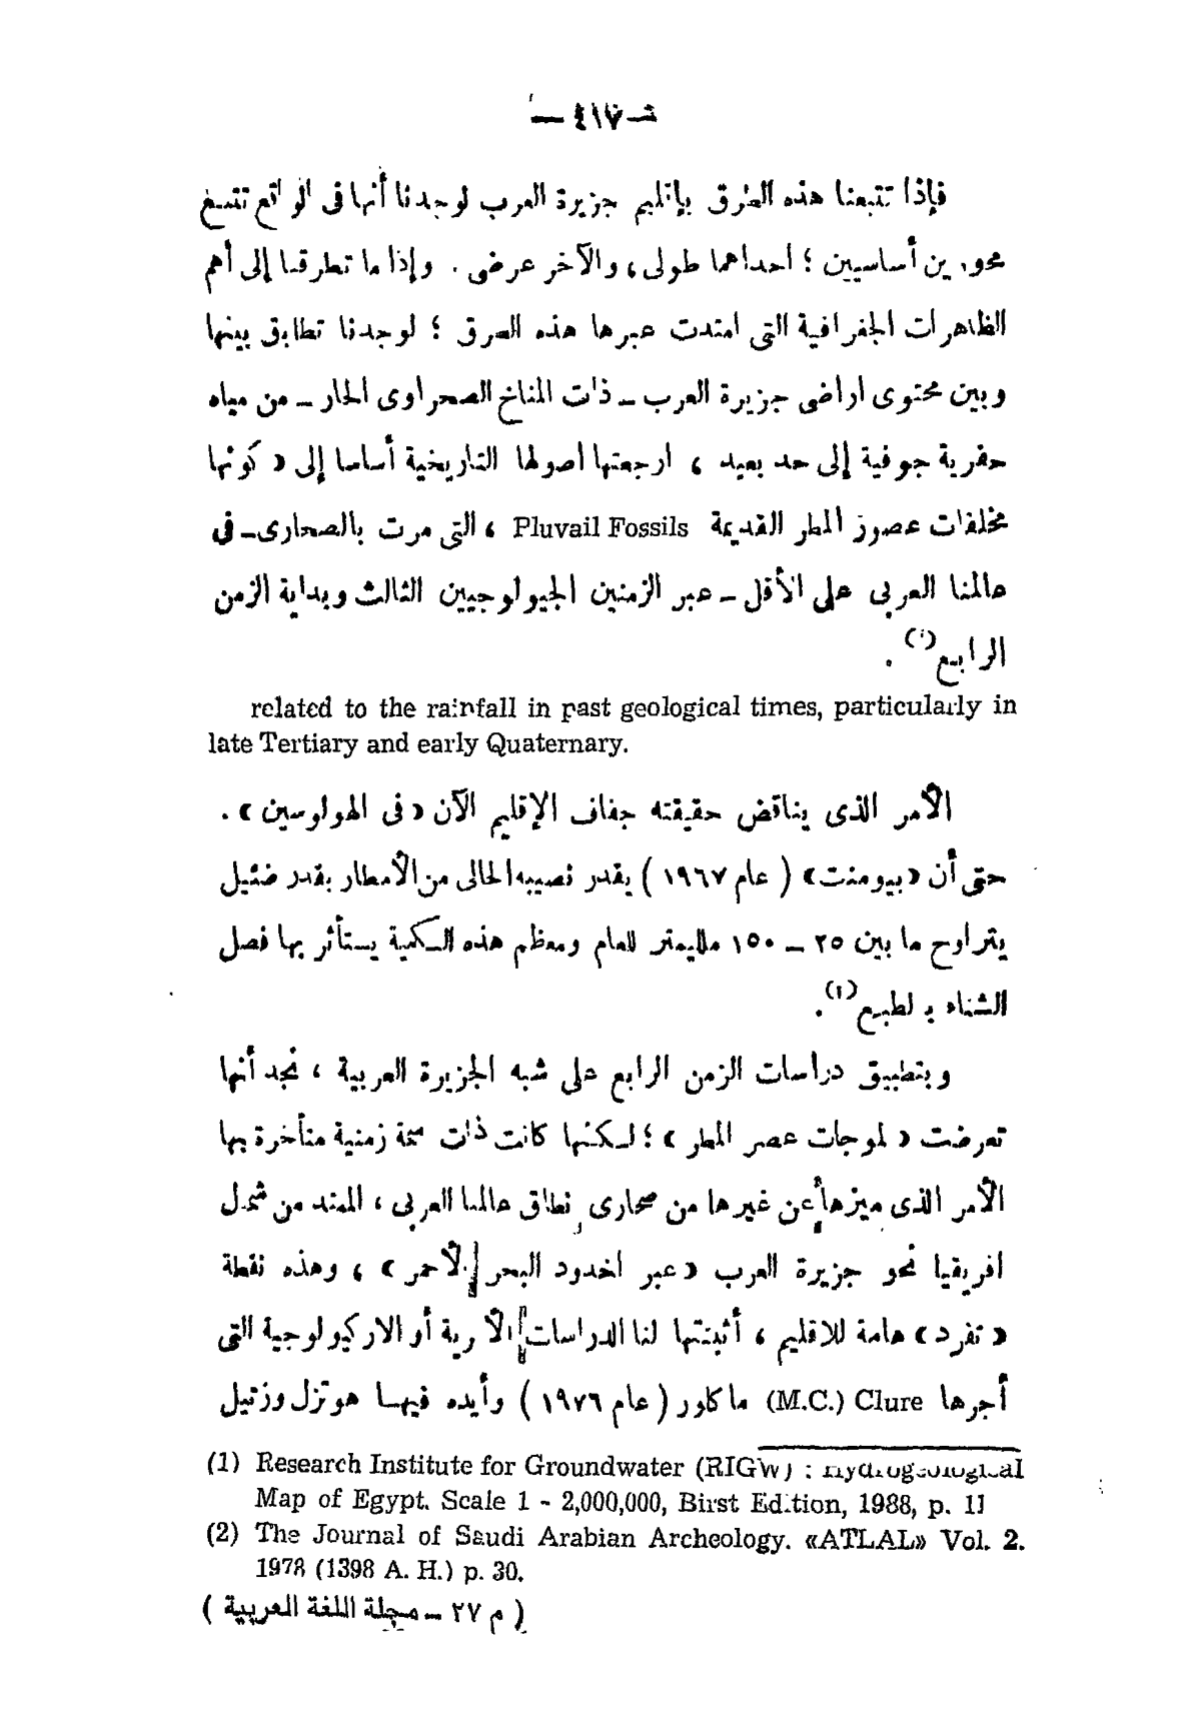 — ٤١٧ —
فإذا تتبعنا هذه الطرق بإقليم جزيرة العرب لوجدنا أنها فى الواقع تتبع
محورين أساسيين ؛ احداهما طولى ، والآخر عرضى . وإذا ما تطرقنا إلى أهم
الظاهرات الجغرافية التى امتدت عبرها هذه الطرق ؛ لوجدنا تطابق بينها
وبين محتوى اراضى جزيرة العرب — ذات المناخ الصحراوى الحار — من مياه
حفرية جوفية إلى حد بعيد ، ارجعتها اصولها التاريخية أساسا إلى « كونها
مخلفات عصور المطر القديمة Pluvail Fossils ، التى مرت بالصحارى — فى
عالمنا العربى على الأقل — عبر الزمنين الجيولوجيين الثالث وبداية الزمن
الرابع (١) .
related to the rainfall in past geological times, particularly in
late Tertiary and early Quaternary.
الأمر الذى يناقض حقيقته جفاف الإقليم الآن « فى الهولوسين » .
حتى أن « بيومنت » ( عام ١٩٦٧ ) يقدر نصيبه الحالى من الأمطار بقدر ضئيل
يتراوح ما بين ٢٥ — ١٥٠ ملليمتر للعام ومعظم هذه الكمية يستأثر بها فصل
الشتاء بالطبع (٢) .
وبتطبيق دراسات الزمن الرابع على شبه الجزيرة العربية ، نجد أنها
تعرضت « لموجات عصر المطر » ؛ لكنها كانت ذات سمة زمنية متأخرة بها
الأمر الذى ميزها عن غيرها من صحارى نطاق عالمنا العربى ، الممتد من شمال
افريقيا نحو جزيرة العرب « عبر اخدود البحر الأحمر » ، وهذه نقطة
« تفرد » هامة للاقليم ، أثبتتها لنا الدراسات الأثرية أو الاركيولوجية التى
أجرها M.C.) Clure) ماكلور ( عام ١٩٧٦ ) وأيده فيها هوتزل وزتيل
(1) Research Institute for Groundwater (RIGW) : Hydrogeological
Map of Egypt. Scale 1 - 2,000,000, Birst Edition, 1988, p. 11
(2) The Journal of Saudi Arabian Archeology. «ATLAL» Vol. 2.
1978 (1398 A. H.) p. 30.
( م ٢٧ — مجلة اللغة العربية )